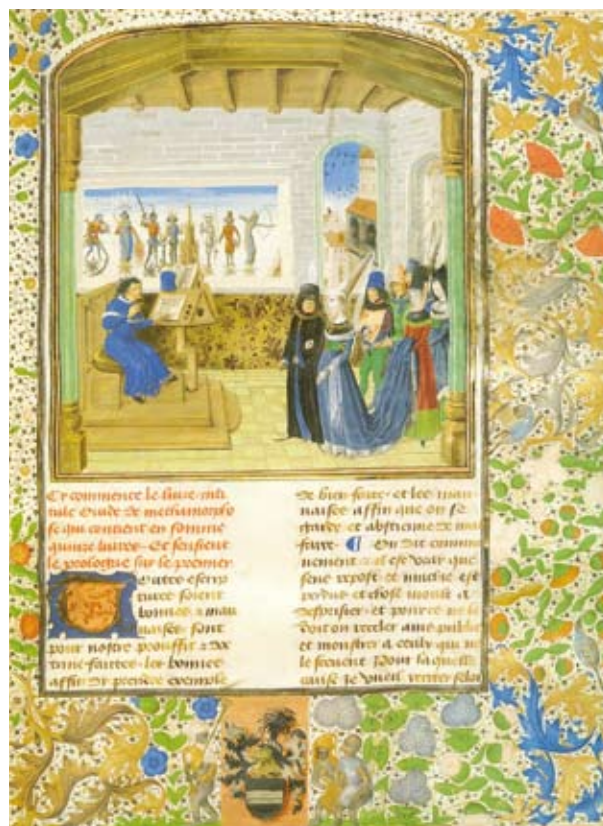 Cy commence le livre inti
tule Ovide de methamorpho
se qui contient en somme
quinze livres Et sensient
le prologue sur le premier
Outes escrip
tures soient
bonnes ou mau
vaises sont
pour nostre prouffit et doc
trine faittes les bonnes
affin de prendre exemple
de bien faire et les mau
vaises affin que on se
garde et abstienne de mal
faire On dit commu
nement et il est vray que
sens repost et mucie est
perdus et chose moult a
desprisier et pource ne le
doit on receler ains publier
et monstrer a ceulz qui ne
le scevent Pour laquelle
cause je vueil reciter selon